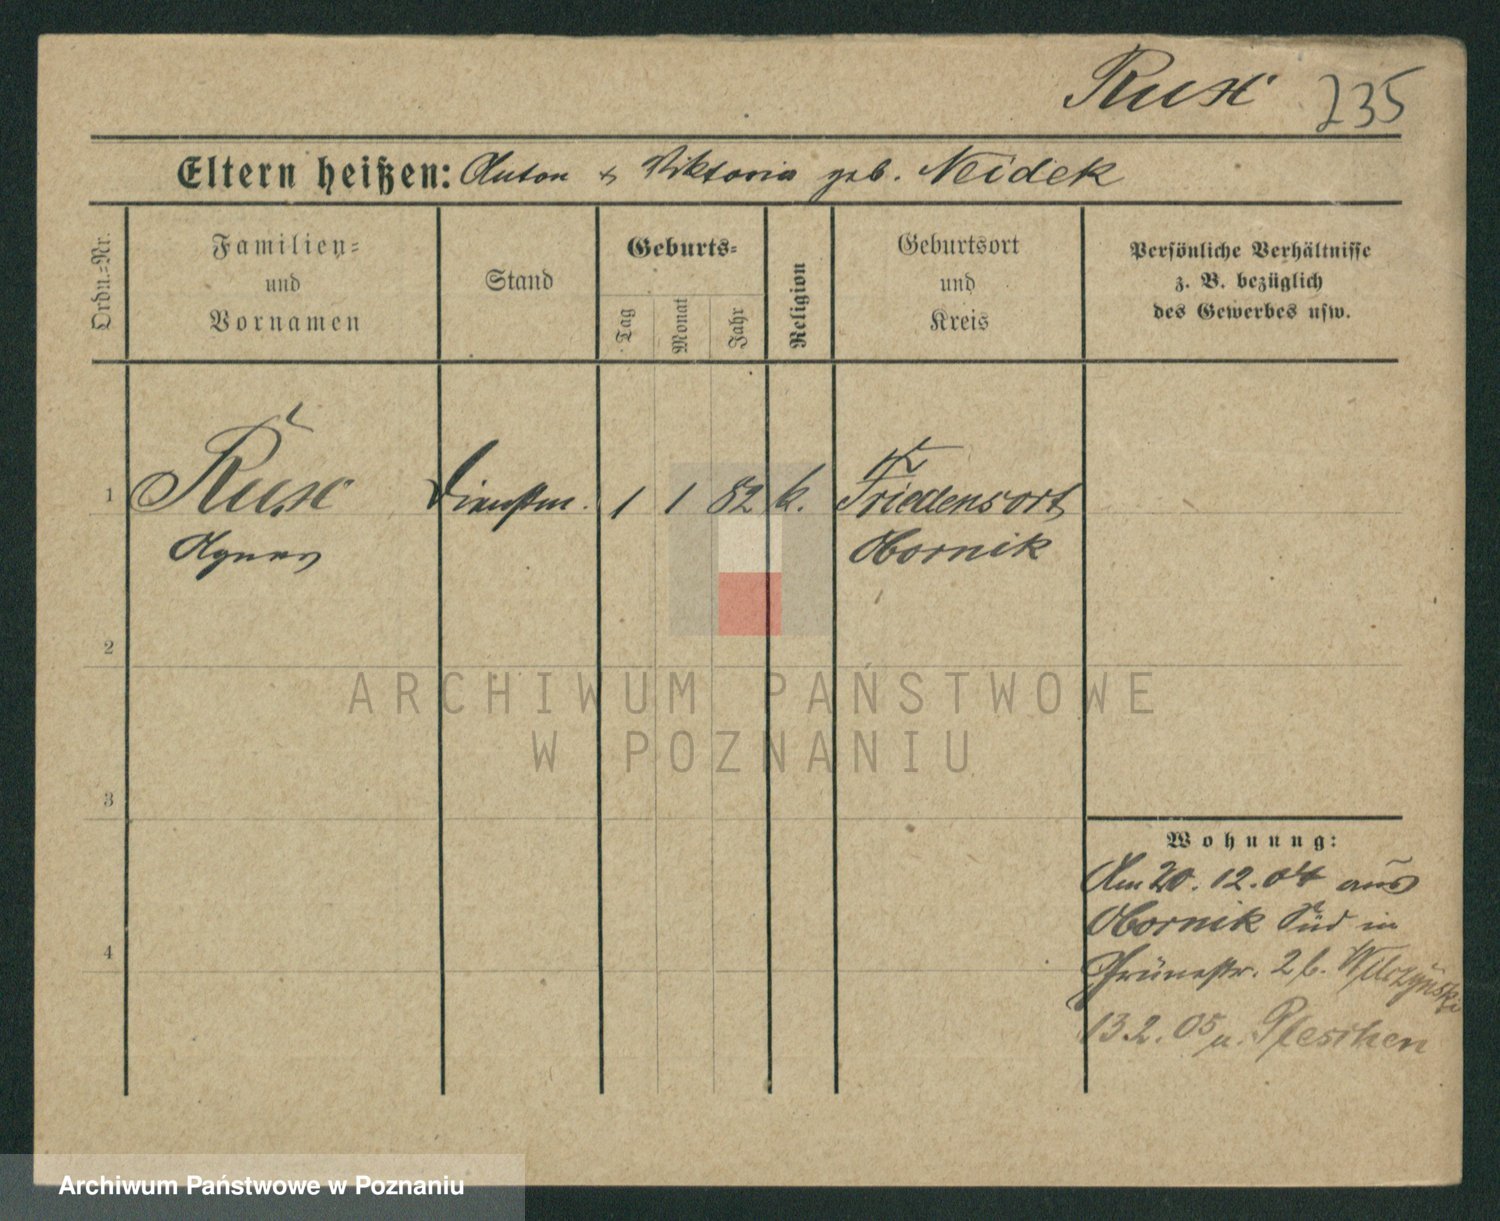 Rux 235
Eltern heißen: Anton & Viktoria geb. Neidek
Ordn.=Nr.
Familien=
und
Vornamen
Stand
Geburts=
Tag
Monat
Jahr
Religion
Geburtsort
und
Kreis
Persönliche Verhältnisse
z. B. bezüglich
des Gewerbes usw.
1 Rux Dienstm. 1 1 82 k. Friedensort
Agnes Obornik
2
3
4
ARCHIWUM PAŃSTWOWE
W POZNANIU
Wohnung:
Am 20. 12. 04 aus
Obornik Süd in
Grünestr. 2 b. Wilczynski
13 2. 05 n. Pleschen
Archiwum Państwowe w Poznaniu